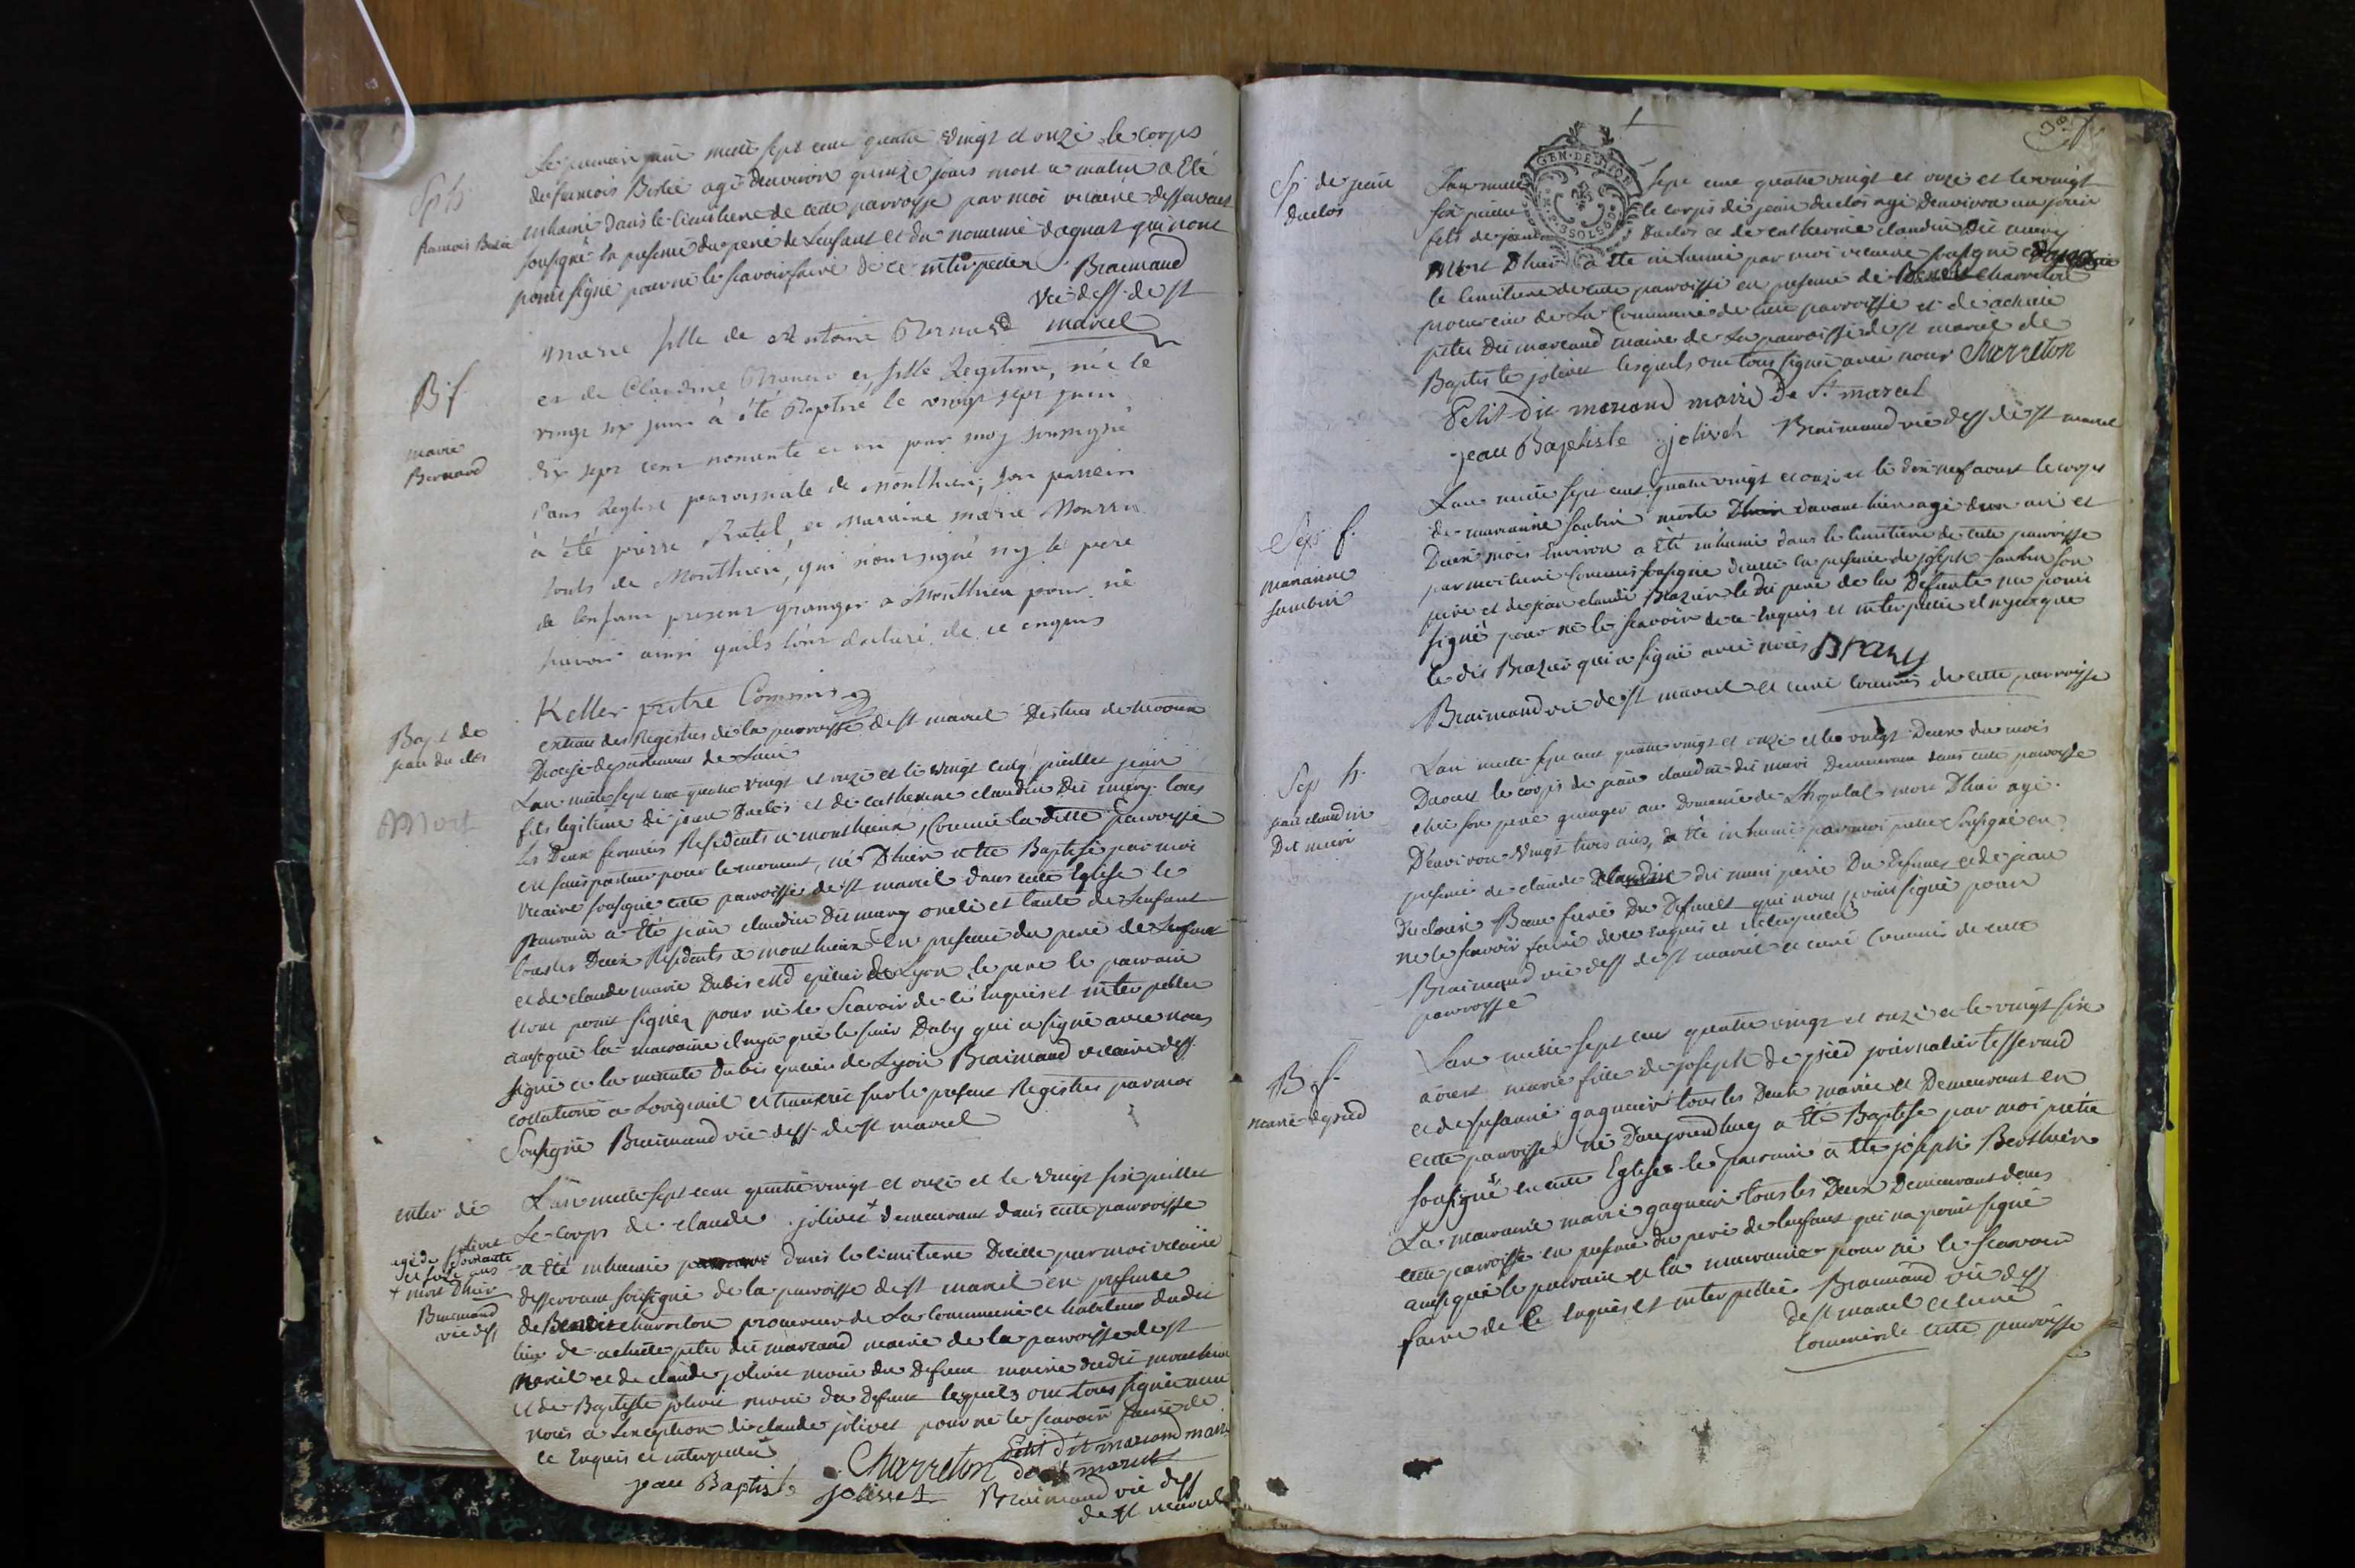 Sph
francois Bislié
Le premier juin mille sept cent quatre vingt et onze le corps
de francois Bislié agé denviron quinze jours mort ce matin a Eté
inhumé dans le Cimetiere de cette parroisse par moi vicaire desservant
sousigné en presence du pere de Lenfant et du nommé daguat qui nont
point signé pour ne le scavoir faire de ce interpeller Braimand
vic dess de st
marcel
B f
marie
Bernard
Marie fille de Antoine Bernard
et de Claudine et fille Legitime, née le
vingt six juin à été Baptisé le vingt sept juin
dix sept cent nonante et un par moy soussigné
dans Leglise paroissiale de Monthieu, son parrein
à été pierre Ratel, et Marraine marie Monsru
touts de Monthieu, qui n'ont signé ny le pere
de lenfant present granger a Monthieu pour ne
savoir ainsi quils l'ont declaré de ce enquis
Keller prêtre Commis
Bapt de
jean du clos
Mort
extrait des Registres de la parroisse de st marcel District de trevoux
Diocese departement de Lain
Lan mille sept cent quatre vingt et onze et le vingt cinq juillet jean
fils legitime de jean Duclos et de catherine claudin Dit mury tous
les Deux fermiers Residents a monthieux, Comme la ditte parroisse
est sans pasteur pour le moment, né D'hier a été Baptisé par moi
vicaire sousigné cette parroisse de st marcel dans cette Eglise le
parrain a Eté jean claudin Dit mury oncle et tante de Lenfant
tous les Deux Residents a monthieux En presence du pere de Lenfant
et de claude marie Dubis md epicier de Lyon le pere le parrain
nont point signez pour ne le Scavoir de ce Enquis et interpeller
ainsi que la marraine il ny a que le sieur Duby qui a signé avec nous
signé a la minute Dubis epicier de Lyon Braimand vicaire dess
collationé a Loriginal et transcrit sur le present Registre par moi
Sousigné Braimand vic dess de st marcel
enter de
jolivet
agé de soixante
et six ans
+ mort Dhier
Braimand
vic dess
L'an mille sept cent quatre vingt et onze et le vingt six juillet
Le corps de claude jolivet + demeurant dans cette parroisse
a Eté inhumé dans le Cimetiere Dicelle par moi vicaire
desservant sousigné de la parroisse de st marcel en presence
de Benoit charreton procureur de La Commune et habitant dudit
lieu de achille petit dit marcand maire de la parroisse de st
marcel et de claude jolivet du Defunt maire dudit monthieu
et de Baptiste jolivet du Defunt lesquels ont tous signé avec
nous a Lexception de claude jolivet pour ne le scavoir faire de
ce Enquis et interpellé
Charreton Petit dit marcand maire
de st marcel
jean Baptiste jolivet Braimand vic dess
de st marcel
Sp de jean
duclos
GEN. DE DIJON
Lan mille sept cent quatre vingt et onze et le vingt
six juillet le corps de jean duclos agé Denviron un jour
fils de jean Duclos et de catherine claudin Dit mury
mort Dhier a été inhumé par moi vicaire sousigné
le Cimetiere de cette parroisse en presence de Benoit charreton
procureur de La Commune de cette parroisse et de achille
petit dit marcand maire de La parroisse de st marcel de
Baptiste jolivet lesquels ont tous signé avec nous Charreton
Petit dit marcand maire de St marcel
jean Baptiste jolivet Braimand vic dess de st marcel
Sep f.
marianne
sambin
Lan mille sept cent quatre vingt et onze et le dix neuf aoust le corps
de marianne sambin morte davant hier agé dun an et
Deux mois Environ a Eté inhumé dans le Cimetiere de cette parroisse
par moi Curé Commis sousigné dicelle en presence de joseph sambin son
pere et de jean claude Brazier le dit pere de la Defunte na point
signé pour ne le scavoir de ce Enquis et interpellé il ny a que
le dit Brazier qui a signé avec nous Brazy
Braimand vic de st marcel et curé Commis de cette parroisse
Sep h.
jean claudin
Dit muri
Lan mille sept cent quatre vingt et onze et le vingt Deux du mois
Daoust le corps de jean claudin dit muri Demeurant dans cette parroisse
chez son pere granger au Domaine de Lhopital mort Dhier agé
Denviron Vingt trois ans, a été inhumé par moi pretre Sousigné en
presence de claude claudin dit muri pere Du Defunt et de jean
Duclos Beau frere Du Defunt qui nont point signé pour
ne le scavoir faire de ce enquis et interpellé
Braimand vic dess de st marcel et curé Commis de cette
parroisse
B f.
marie depied
Lan mille sept cent quatre vingt et onze et le vingt six
aoust marie fille de joseph de pied journalier tisserand
et de susanne gagneur tous les Deux mariés et Demeurant en
cette parroisse né Daujourdhuy a Eté Baptisé par moi prêtre
sousigné en cette Eglise le parrain a été joseph Berthier
La marraine marie gagneur tous les Deux Demeurant dans
cette parroisse en presence du pere de lenfant qui na point signé
ainsi que le parrain et la marraine pour ne le scavoir
faire de Ce Enquis et interpellé Braimand vic dess
de st marcel et curé
Commis de cette parroisse